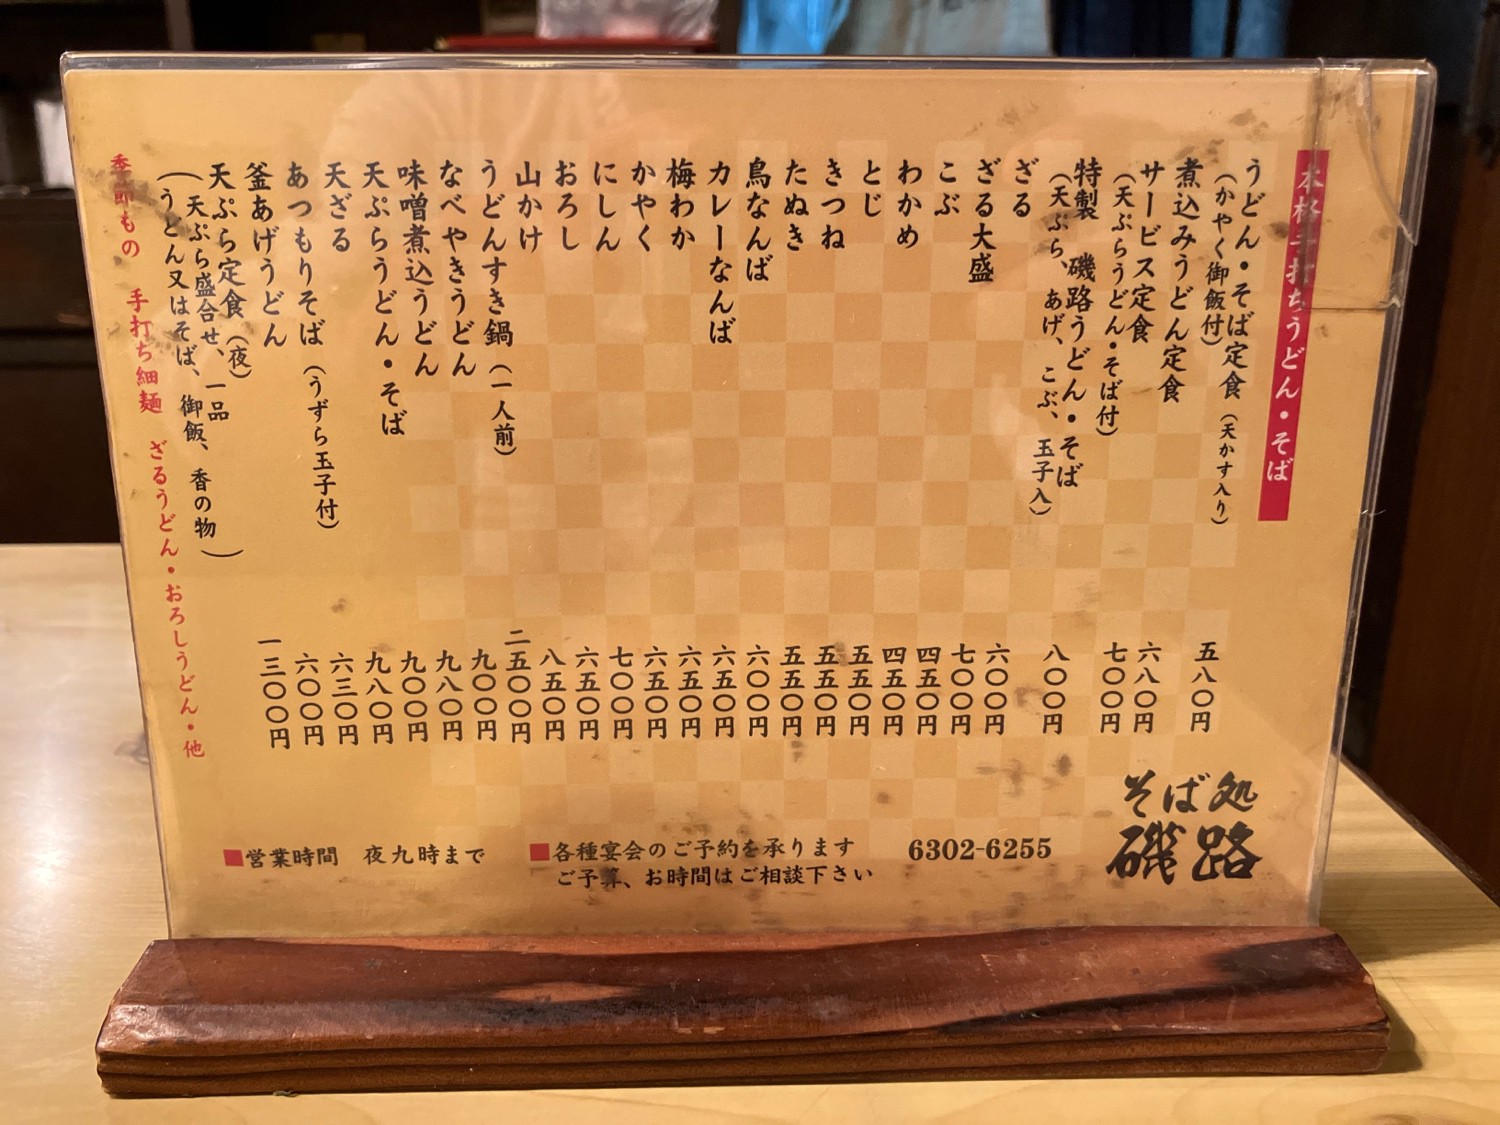 本格手打ちうどん・そば
うどん・そば定食（天かす入り） 五八〇円
（かやく御飯付）
煮込みうどん定食 六八〇円
サービス定食 七〇〇円
（天ぷらうどん・そば付）
特製 磯路うどん・そば 八〇〇円
（天ぷら、あげ、こぶ、玉子入）
ざる 六〇〇円
ざる大盛 七〇〇円
こぶ 四五〇円
わかめ 四五〇円
とじ 五五〇円
きつね 五五〇円
たぬき 五五〇円
鳥なんば 六〇〇円
カレーなんば 六五〇円
梅わか 六五〇円
かやく 六五〇円
にしん 七〇〇円
おろし 六五〇円
山かけ 八五〇円
うどんすき鍋（一人前） 二五〇〇円
なべやきうどん 九〇〇円
味噌煮込うどん 九八〇円
天ぷらうどん・そば 九〇〇円
天ざる 九八〇円
あつもりそば（うずら玉子付） 六三〇円
釜あげうどん 六〇〇円
天ぷら定食（夜） 一三〇〇円
（天ぷら盛合せ、一品
うどん又はそば、御飯、香の物）
季節もの 手打ち細麺 ざるうどん・おろしうどん・他
そば処
磯路
6302-6255
■各種宴会のご予約を承ります
ご予算、お時間はご相談下さい
■営業時間 夜九時まで